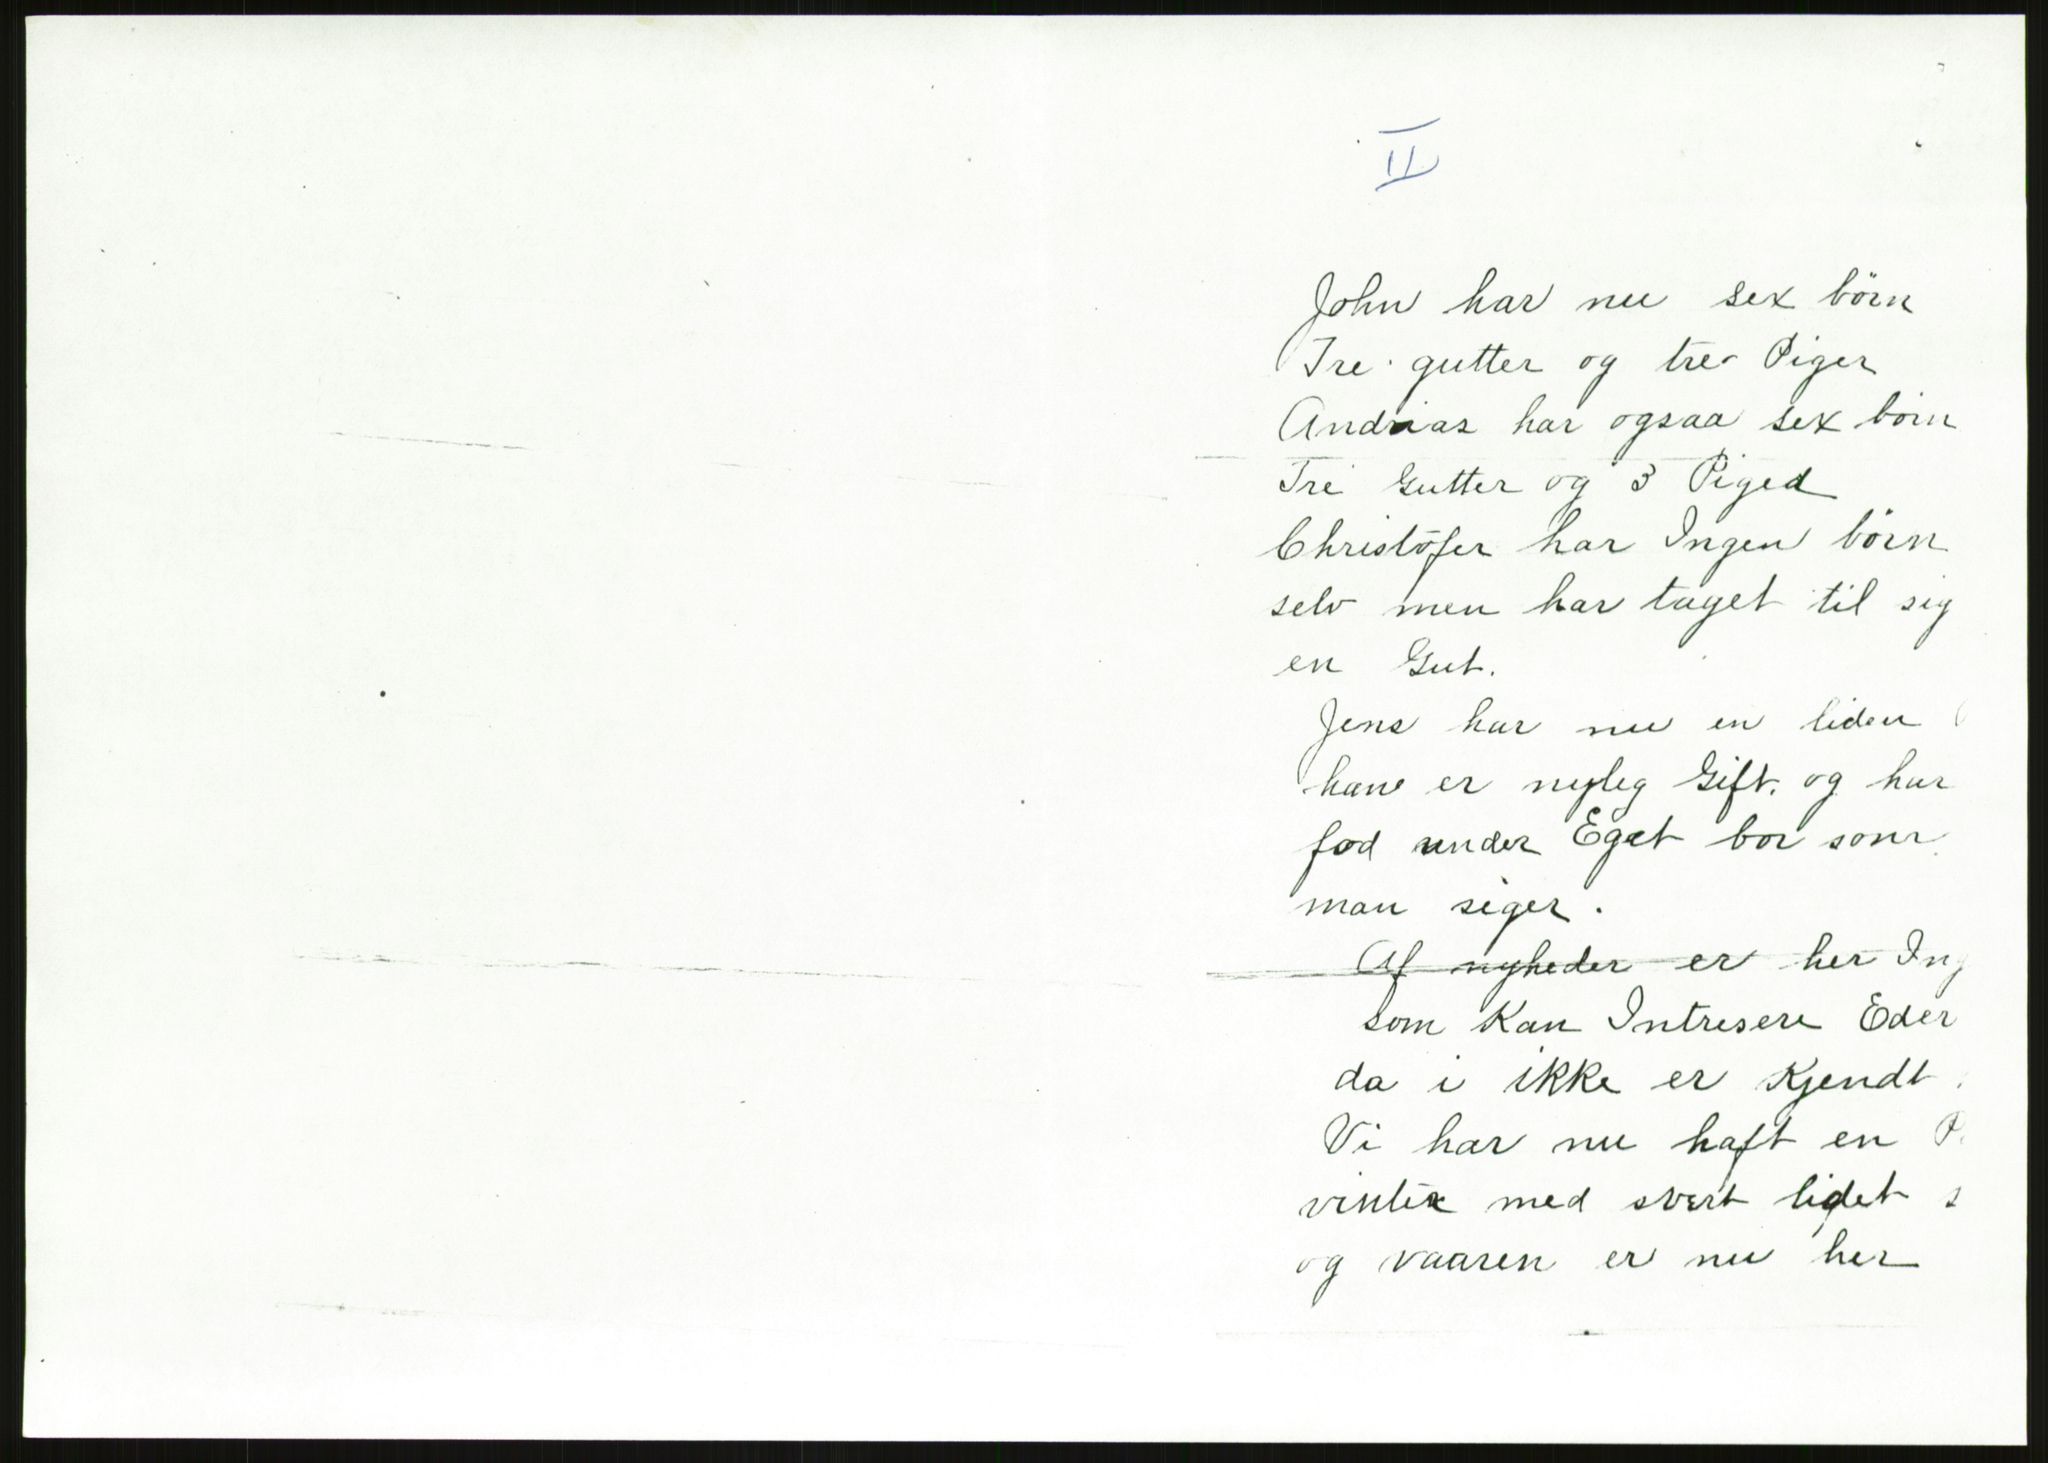 II
John har nu sex börn
Tre gutter og tre Piger
Andrias har ogsaa sex börn
Tre Gutter og 3 Piged
Christofer har Ingen börn
selv men har taget til sig
en Gut.
Jens har nu en liden
han er nyleg Gift. og har
fod under Eget bor som
man siger.
Af nyheder er her Ing
som Kan Intresere Eder
da i ikke er Kjendt
Vi har nu haft en
vinter med svert lidet
og vaaren er nu her